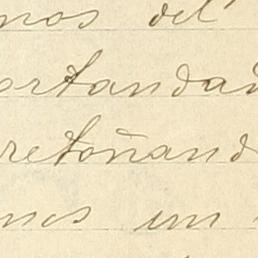 nos del
ortandad
retoñand
nos un